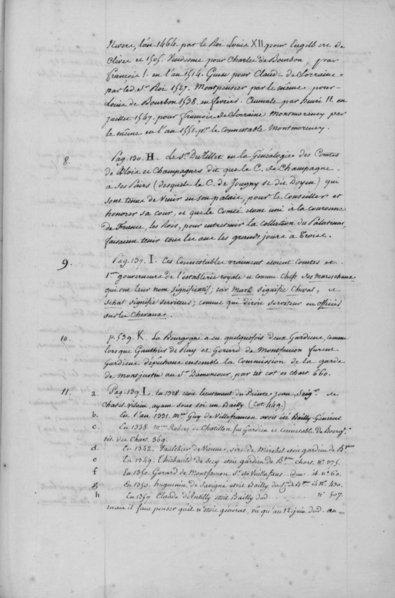 Nevers, l'an 1464. par le Roi Louis XII. pour Engilbert de
Cleves et 1505. Vendosme pour Charles de Bourbon, par
françois I. en l'an 1514. Guise pour Claude de Lorraine
par led. Sr. Roi 1527. Montpensier par le même pour
Louis de Bourbon 1538. Aumale par henri II. en
juillet 1547. pour françois de Lorraine Montmorency par
le même en l'an 1551. pr. le connestable Montmorency.
8. Pag. 130. H. Le Sr. DuTillet en la Généalogie des Comtes
de Blois et Champagne dit que le C. de Champagne
a ses Pairs (desquels le C. de Joigny est le Doyen) qui
sont tenus de venir en son palais, pour le conseiller et
honorer sa cour, et que la Comté étant uni à la couronne
de France, les Rois, pour entretenir la collection du Palatinat
faisaient tenir tous les ans les grands jours à Troies.
9. Pag. 134. I. Ces Connestables vraiment étoient Comtes et
1ers gouverneurs de l'establerie royale et comme Chefs des Marechaux
qui ont leur nom significatif; car Mark signifie Cheval, et
schal signifie serviteur; comme qui diroit serviteur ou officier
sur les chevaux.
10. p. 539. K. La Bourgogne a eu quelquefois deux Gardiens, comme
lorsque Gauthier de Ray et Gerard de Montfaucon furent
Gardiens députèrent ensemble la Commission de la garde
de Monjoustin au Sr. Damoncour, par tit. cot. es chart. 260.
11. a. Pag. 139. L. en 1328 étoit lieutenant du Prince Jean, Seigr. de
Chatel vilain, ayant sous soi un Bailly (Cot. 449.)
b. En l'an 1331. Mre. Guy de Villefrancon avoit été Bailly Général
c. En 1338. Mre. Robert de Chatillon fut Gardien et connestable de Bourgne.
tit. des Char. 369.
d. En 1342. Fauldhier de Vienne, sire de Mirebel étoit gardien de Bgne.
e. En 1349. Thiebault de Scey étoit gardien de Bgne. char. No. 375.
f. En 1350. Gerard de Montfaucon, Sr. de Villafans idem No. 63.
g. En 1350. huguenin de Savigna étoit Bailly No. 430.
h. En 1350. Claude de Intilly étoit Bailly dud. No. 507.
mais il faut penser qu'il n'étoit général, vu qu'au 12 juin dud. an